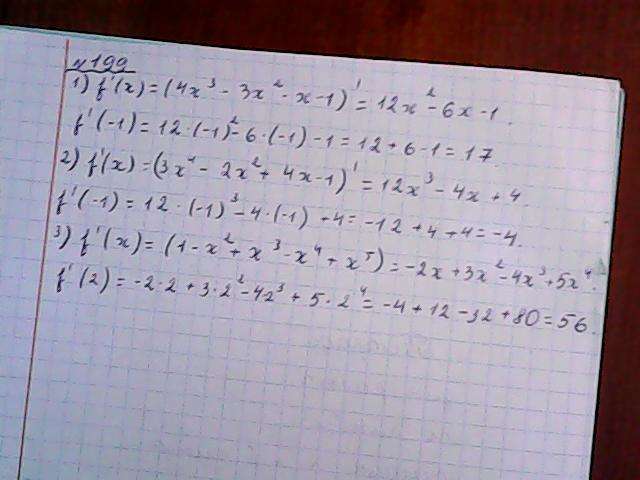 №199
1) f'(x) = (4x³ - 3x² - x - 1)' = 12x² - 6x - 1.
f'(-1) = 12·(-1)² - 6·(-1) - 1 = 12 + 6 - 1 = 17.
2) f'(x) = (3x⁴ - 2x² + 4x - 1)' = 12x³ - 4x + 4.
f'(-1) = 12·(-1)³ - 4·(-1) + 4 = -12 + 4 + 4 = -4.
3) f'(x) = (1 - x² + x³ - x⁴ + x⁵) = -2x + 3x² - 4x³ + 5x⁴.
f'(2) = -2·2 + 3·2² - 42³ + 5·2⁴ = -4 + 12 - 32 + 80 = 56.